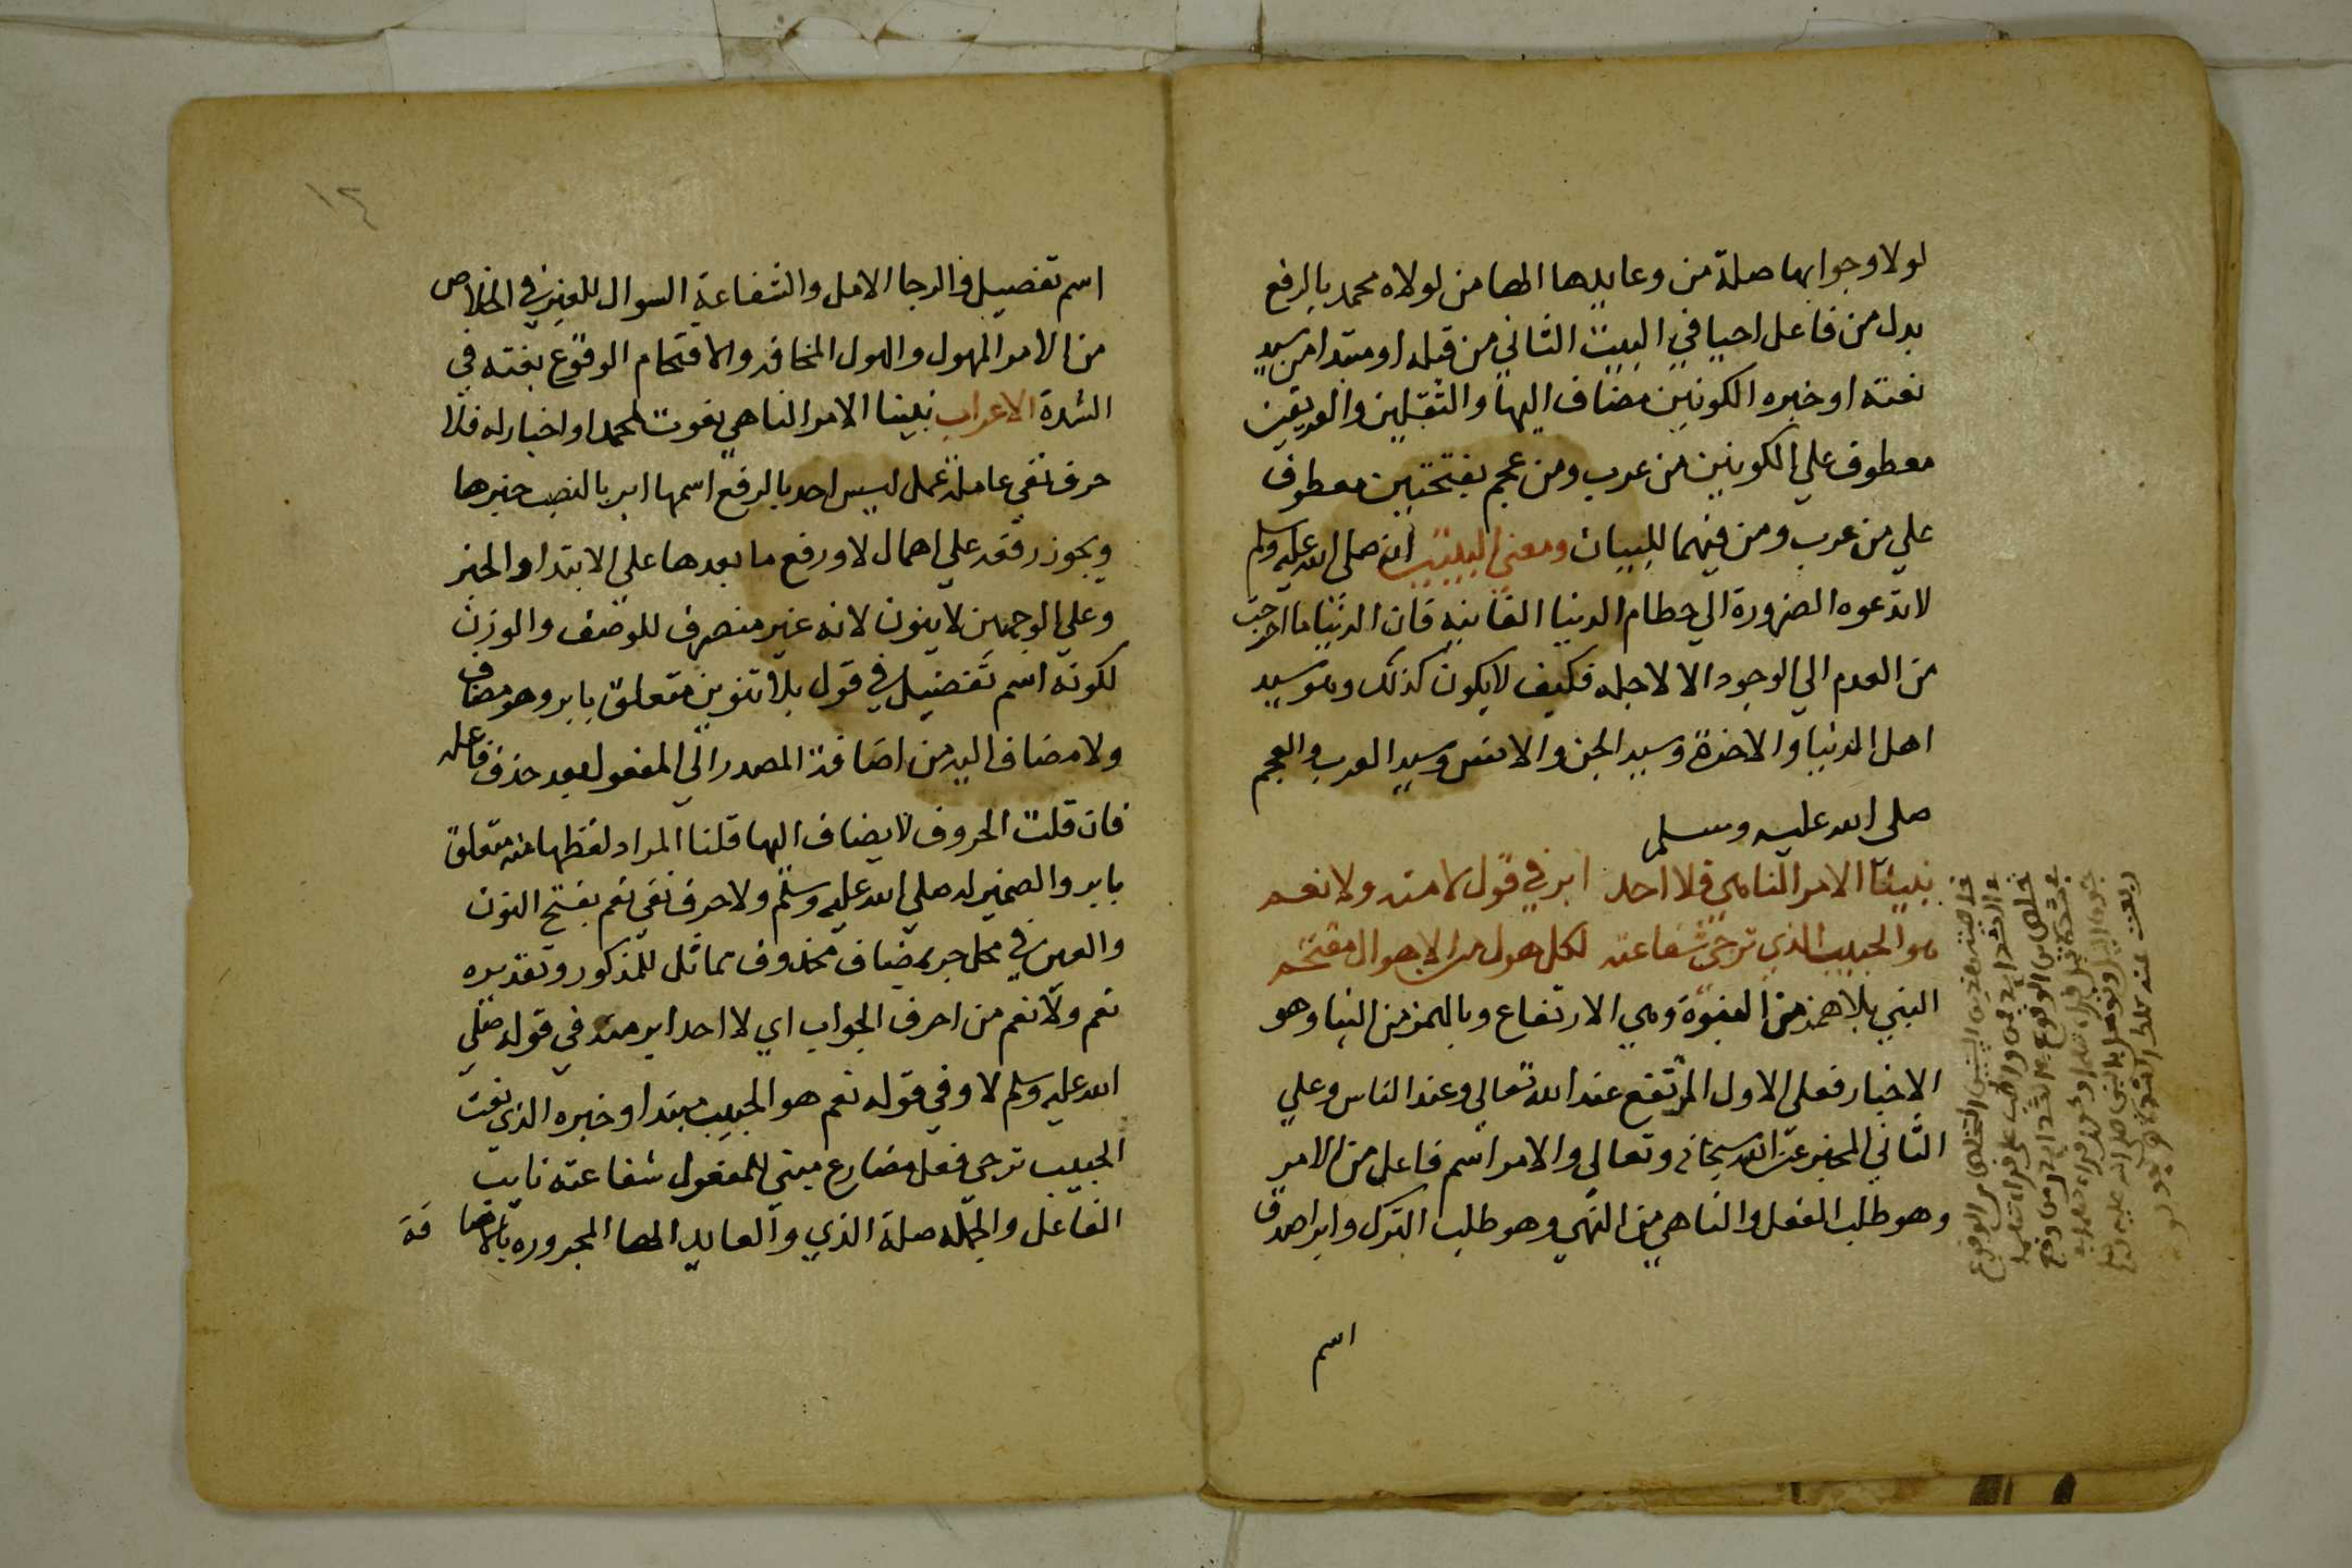 لولا وجوابها صلة من وعايدها الها من لولاه محمد بالرفع
بدل من فاعل احيا في البيت الثاني من قبله او مبتدا من سيد
نعته او خبره الكونين مضاف اليها والثقلين والفريقين
معطوف علي الكونين من عرب ومن عجم بفتحتين معطوف
علي من عرب ومن فيهما للبيان ومعني البيتين انه صلى الله عليه وسلم
لا تدعوه الضرورة الي حطام الدنيا الفانيه فان الدنيا ما اخرجت
من العدم الي الوجود الا لاجله فكيف لا يكون كذلك وهو سيد
اهل الدنيا والاخرة وسيد الجن والانس وسيد العرب والعجم
صلى الله عليه وسلم
نبينا الامر الناهي فلا احد ابر في قول لا منه ولا نعم
هو الحبيب الذي ترجى شفاعته لكل هول من الاهوال مقتحم
النبي بلا همز من النبوة وهي الارتفاع وبالهمز من النبا وهو
الاخبار فعلى الاول المرتفع عند الله تعالي وعند الناس وعلي
الثاني المخبر عن الله سبحانه وتعالي والامر اسم فاعل من الامر
وهو طلب الفعل والناهي من النهي وهو طلب الترك وابر اصدق
اسم
١٢
اسم تفضيل والرجا الامل والشفاعة السوال للغير في الخلاص
من الامر المهول والهول المخافه والاقتحام الوقوع بغته في
الشدة الاعراب نبينا الامر الناهي نعوت لمحمد او اخبار له فلا
حرف نفي عاملة عمل ليس احد بالرفع اسمها ابر بالنصب خبرها
ويجوز رفعه علي اهمال لا ورفع ما بعدها علي الابتدا والخبر
وعلي الوجهين لا ينون لانه غير منصرف للوصف والوزن
لكونه اسم تفضيل في قول بلا تنوين متعلق بابر وهو مضاف
ولا مضاف اليه من اضافة المصدر الي المفعول بعد حذف فاعله
فان قلت الحروف لا يضاف اليها قلنا المراد لفظها منه متعلق
بابر والضمير له صلي الله عليه وسلم ولا حرف نفي نعم بفتح النون
والعين في محل جر بمضاف محذوف مماثل للمذكور وتقديره
نعم ولا نعم من احرف الجواب اي لا احد ابر منه في قوله صلي
الله عليه وسلم لا وفي قوله نعم هو الحبيب مبتدا وخبره الذي نعت
الحبيب ترجى فعل مضارع مبني للمفعول شفاعته نايب
الفاعل والجمله صلة الذي والعايد الها المجروره بالاضا فة